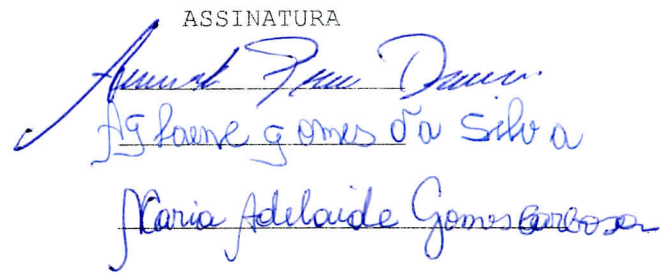 ASSINATURA
Aglaene gomes da Silva
Maria Adelaide Gomes Barbosa